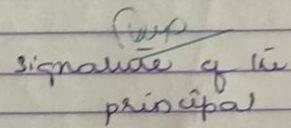 signature of the
principal